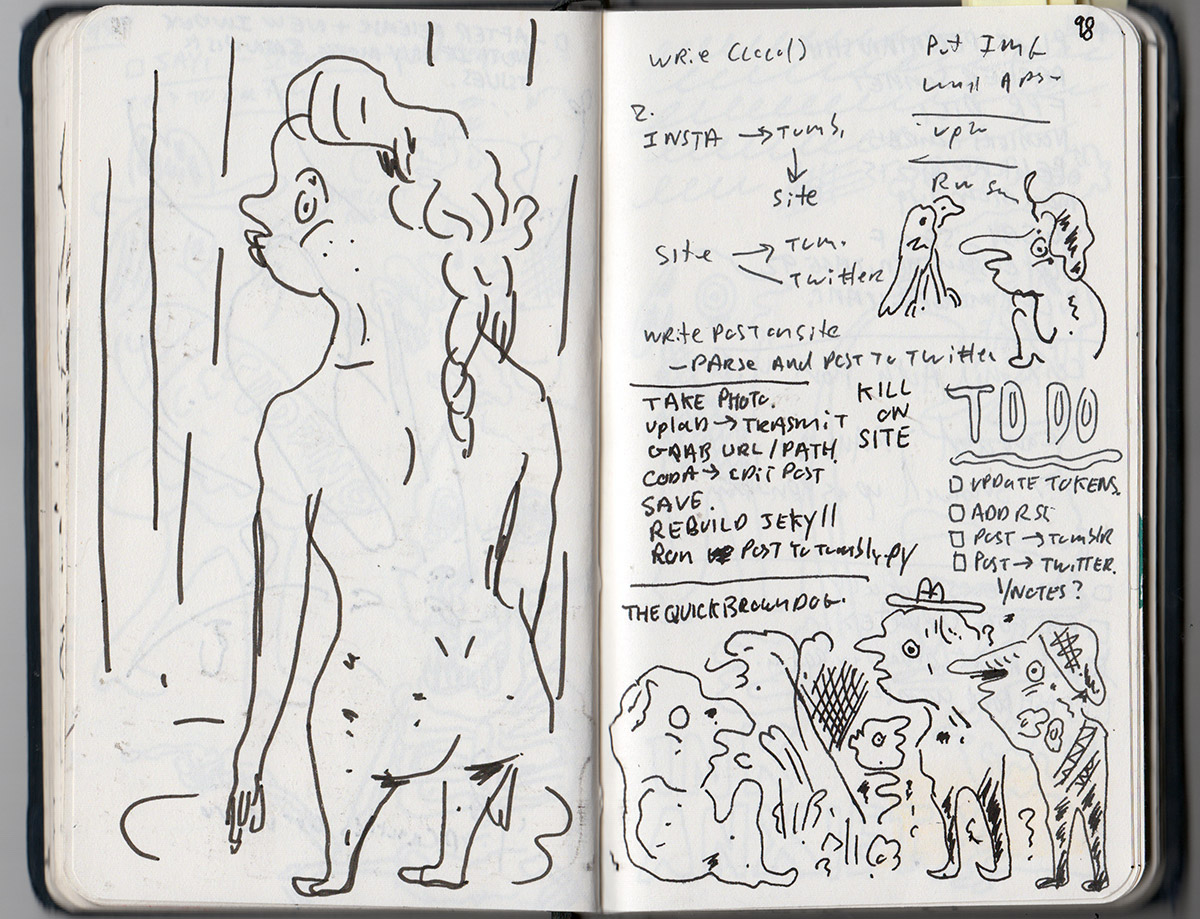 98
write
Put
until
2.
INSTA → Tumb.
↓
site
Site → Tum.
Twitter
write Post on site
— PARSE AND POST TO TWITTER
TAKE PHOTO.
UPLOAD → TRASMIT
GRAB URL/PATH
CODA → EDIT POST
SAVE.
REBUILD JEKYll
Run POST TO Tumblr.py
KILL
ON
SITE
TO DO
UPDATE TOKENS.
ADD
POST → Tumblr
POST → TWITTER.
Y/NOTES?
THE QUICK BROWN DOG.